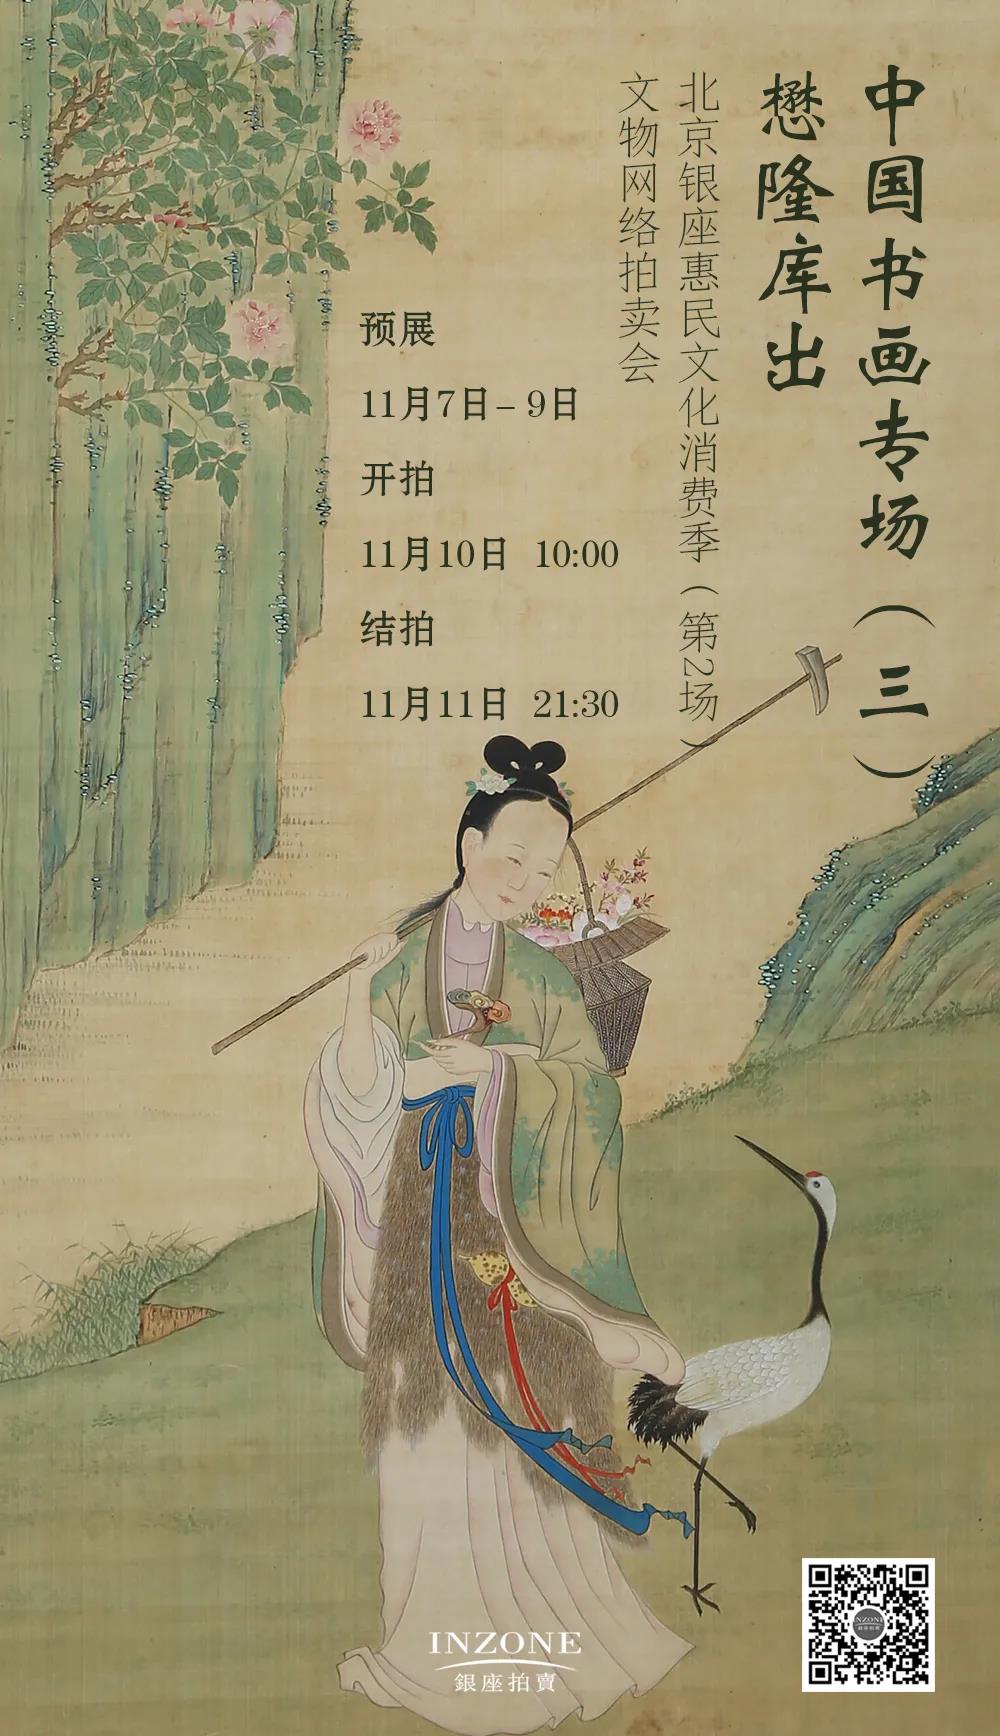 中国书画专场（三）
懋隆库出
北京银座惠民文化消费季（第2场）
文物网络拍卖会
预展
11月7日–9日
开拍
11月10日 10:00
结拍
11月11日 21:30
INZONE
銀座拍賣
INZONE
銀座拍賣